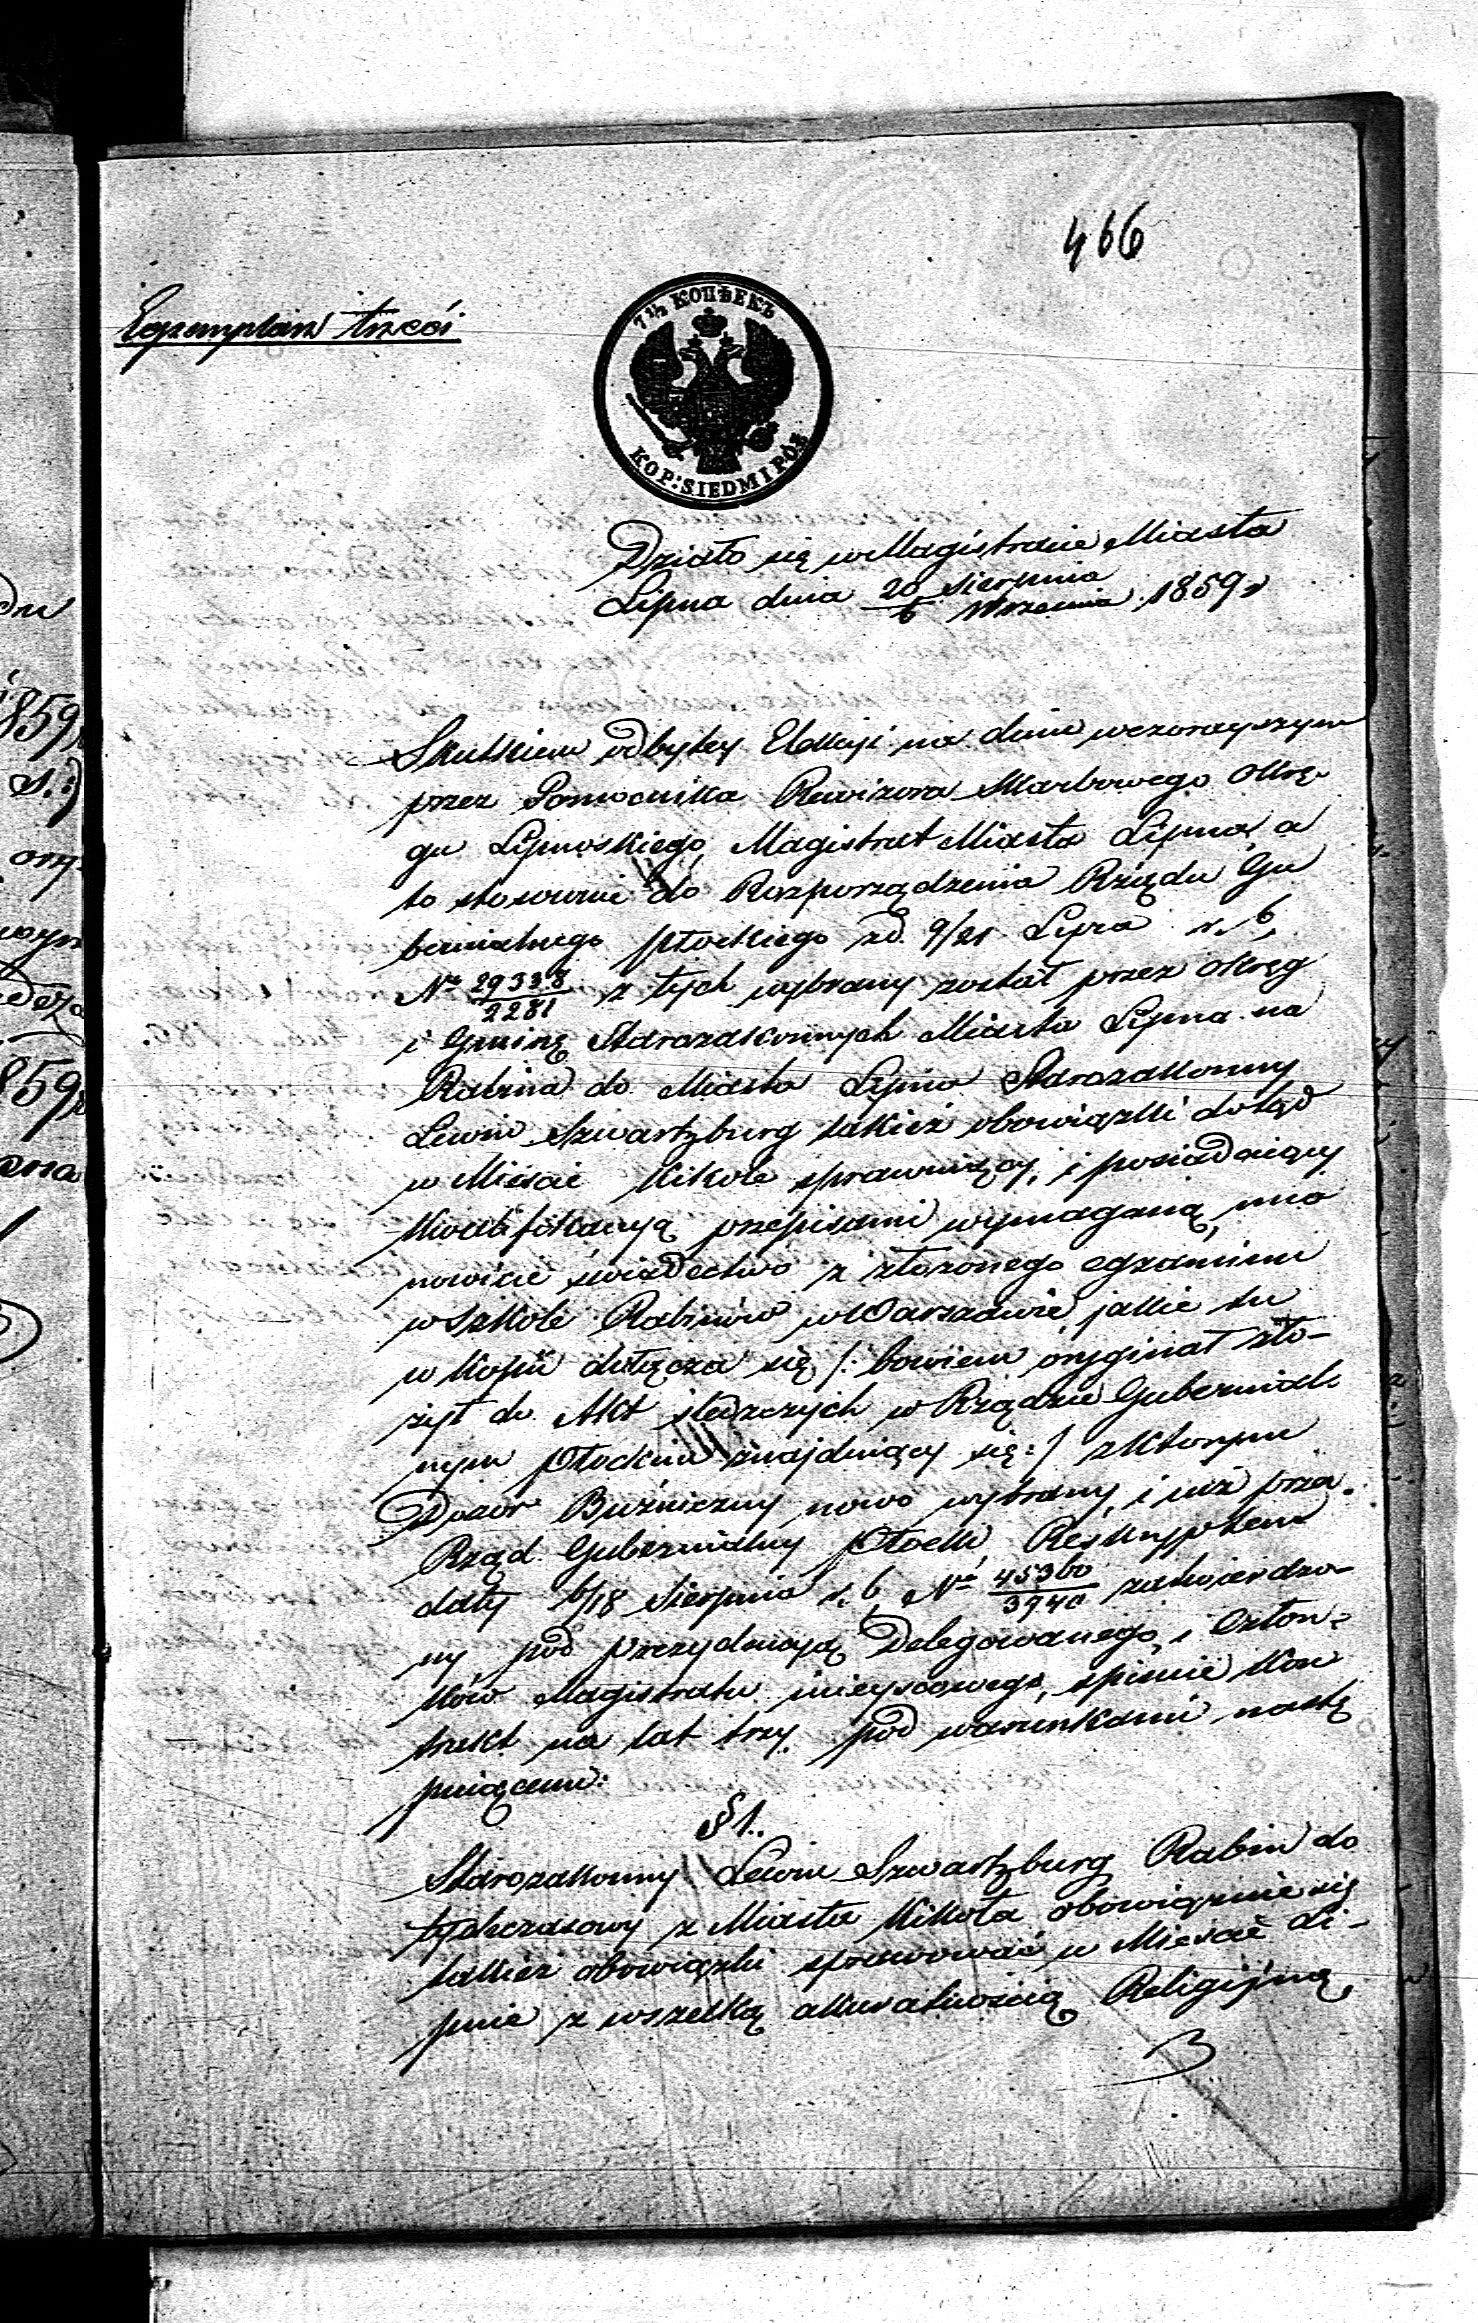 466
Egzemplarz trzeci
7 1/2 КОПѢЕКЪ
KOP: SIEDM I PÓŁ
Działo się w Magistracie Miasta
Lipna dnia 20 Sierpnia / 6 Września 1859 r
Skutkiem odbytey Elekcyi na dniu wczorayszym
przez Pomocnika Rewizora Skarbowego Okrę-
gu Lipnoskiego, Magistrat Miasta Lipna, a
to stosownie do Rozporządzenia Rządu Gu
bernialnego Płockiego z d. 9/21 Lipca r. b,
No 29338/2281 z tych wybrany został przez okręg
i Gminę Starozakonnych Miasta Lipna na
Rabina do Miasta Lipna Starozakonny
Lewin Szwartzburg takież obowiązki dotąd
w Mieście Kikole sprawuiący, i posiadaiący
kwalifikacyą przepisami wymaganą, mia
nowicie świadectwo z złożonego egzaminu
w Szkole Rabinów w Warszawie, jakie tu
w kopii dołącza się /: bowiem oryginał zło-
żył do Akt śledczych w Rządzie Gubernial-
nym Płockim znajduiący się :/ z którym
Dozór Bużniczny nowo wybrany, i iuż przez
Rząd Gubernialny Płocki, Reskryptem
daty 6/18 Sierpnia r. b, No 45360/3940 zatwierdzo-
ny, pod prezydencyą Delegowanego, i Człon-
ków Magistratu mieyscowego, spisuie Kon
trakt na lat trzy. pod warunkami nastę
puiącemi:
§ 1.
Starozakonny Lewin Szwartzburg Rabin do
tychczasowy z Miasta Kikoła obowiązuie się
takież obowiązki sprawować w Mieście Li-
pnie z wszelką akuratnością Religijną,